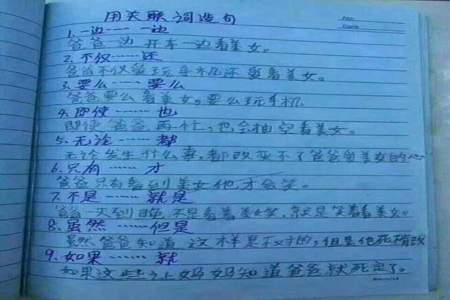 用关联词造句
1.一边…… 一边
爸爸一边开车一边看美女。
2.不仅……还
爸爸不仅爱玩手机还爱看美女。
3.要么……要么
爸爸要么看美女，要么玩手机
4.即使……也
即使爸爸再忙，也会抽空看美女。
5.无论……都
无论发生什么事，都改变不了爸爸爱美女的心
6.只有……才
爸爸只有看到美女他才会笑。
7.不是……就是
爸爸一天到晚不是看着美女笑，就是笑着看美女。
8.虽然……但是
虽然爸爸知道这样是不对的，但是他死不悔改
9.如果……就
如果这些让妈妈知道爸爸就死定了。